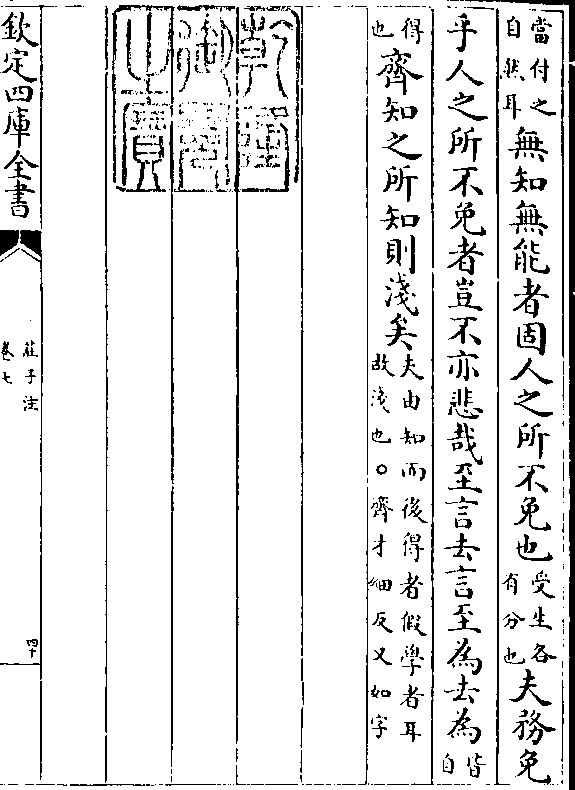 當付之
自然耳
無知無能者固人之所不免也
受生各
有分也
夫務免
乎人之所不免者豈不亦悲哉至言去言至為去為
皆
自
得
也
齊知之所知則淺矣
夫由知而後得者假學者耳
故淺也○齊才細反又如字
乾隆
御覽
之寶
欽定四庫全書
莊子注
卷七
四十